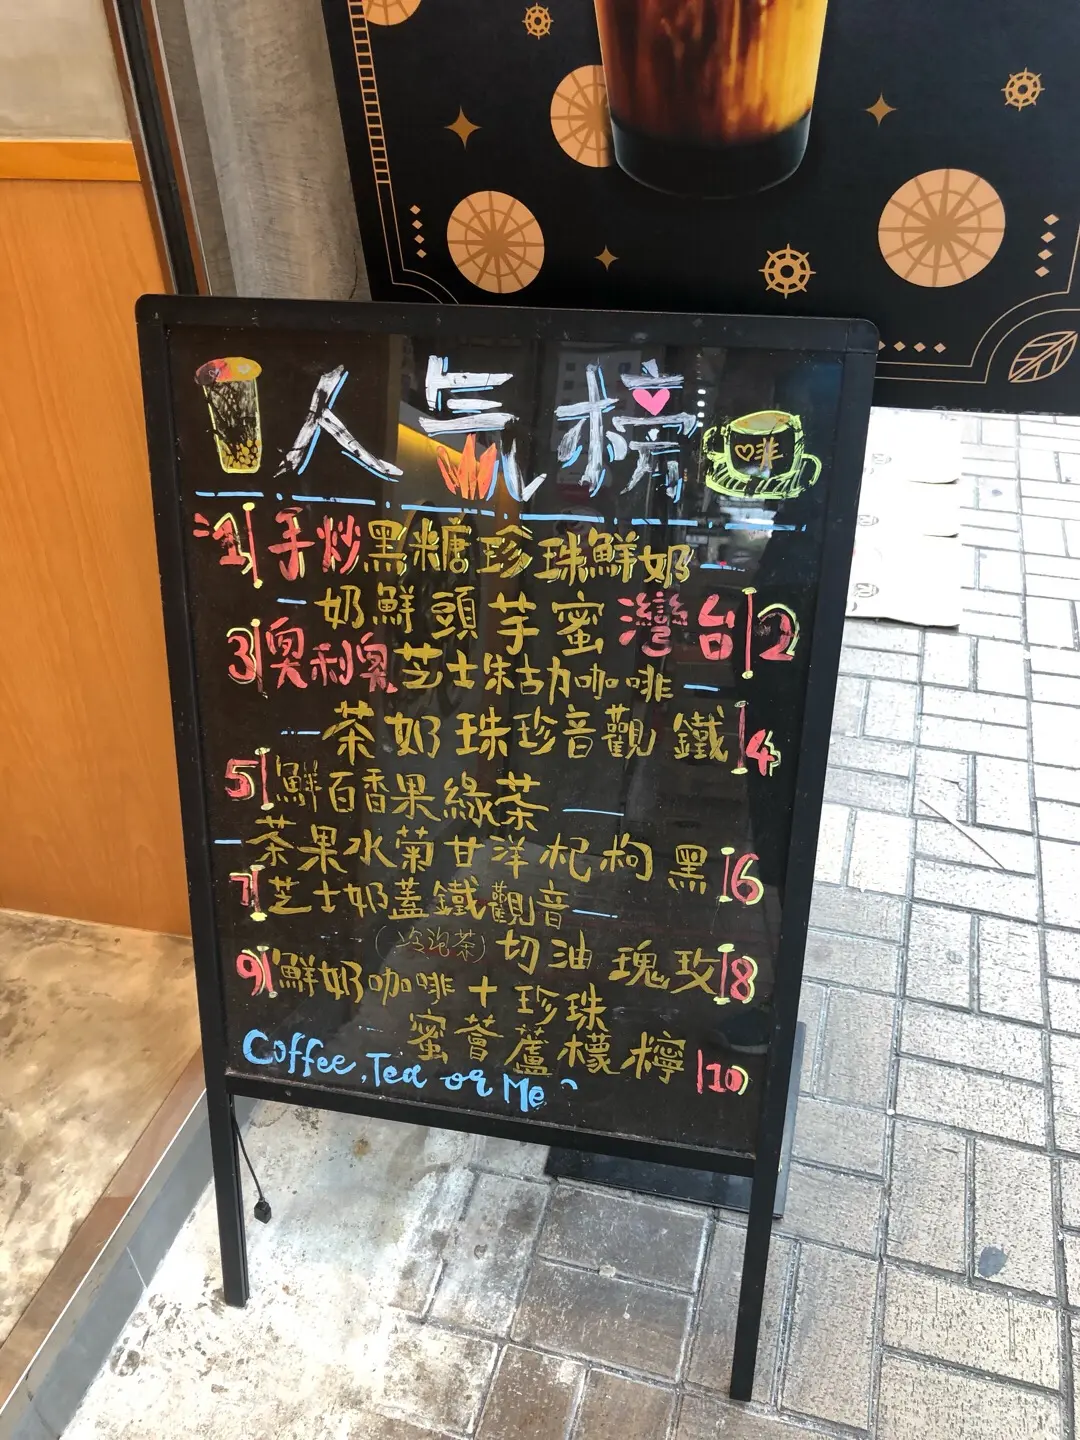 人氣榜
啡
1 手炒黑糖珍珠鮮奶
2 台灣蜜芋頭鮮奶
3 奧利奧芝士朱古力咖啡
4 鐵觀音珍珠奶茶
5 鮮百香果緣茶
6 黑枸杞洋甘菊水果茶
7 芝士奶蓋鐵觀音
8 玫瑰油切(冷泡茶)
9 鮮奶咖啡+珍珠
10 檸檬蘆薈蜜
Coffee, Tea or Me